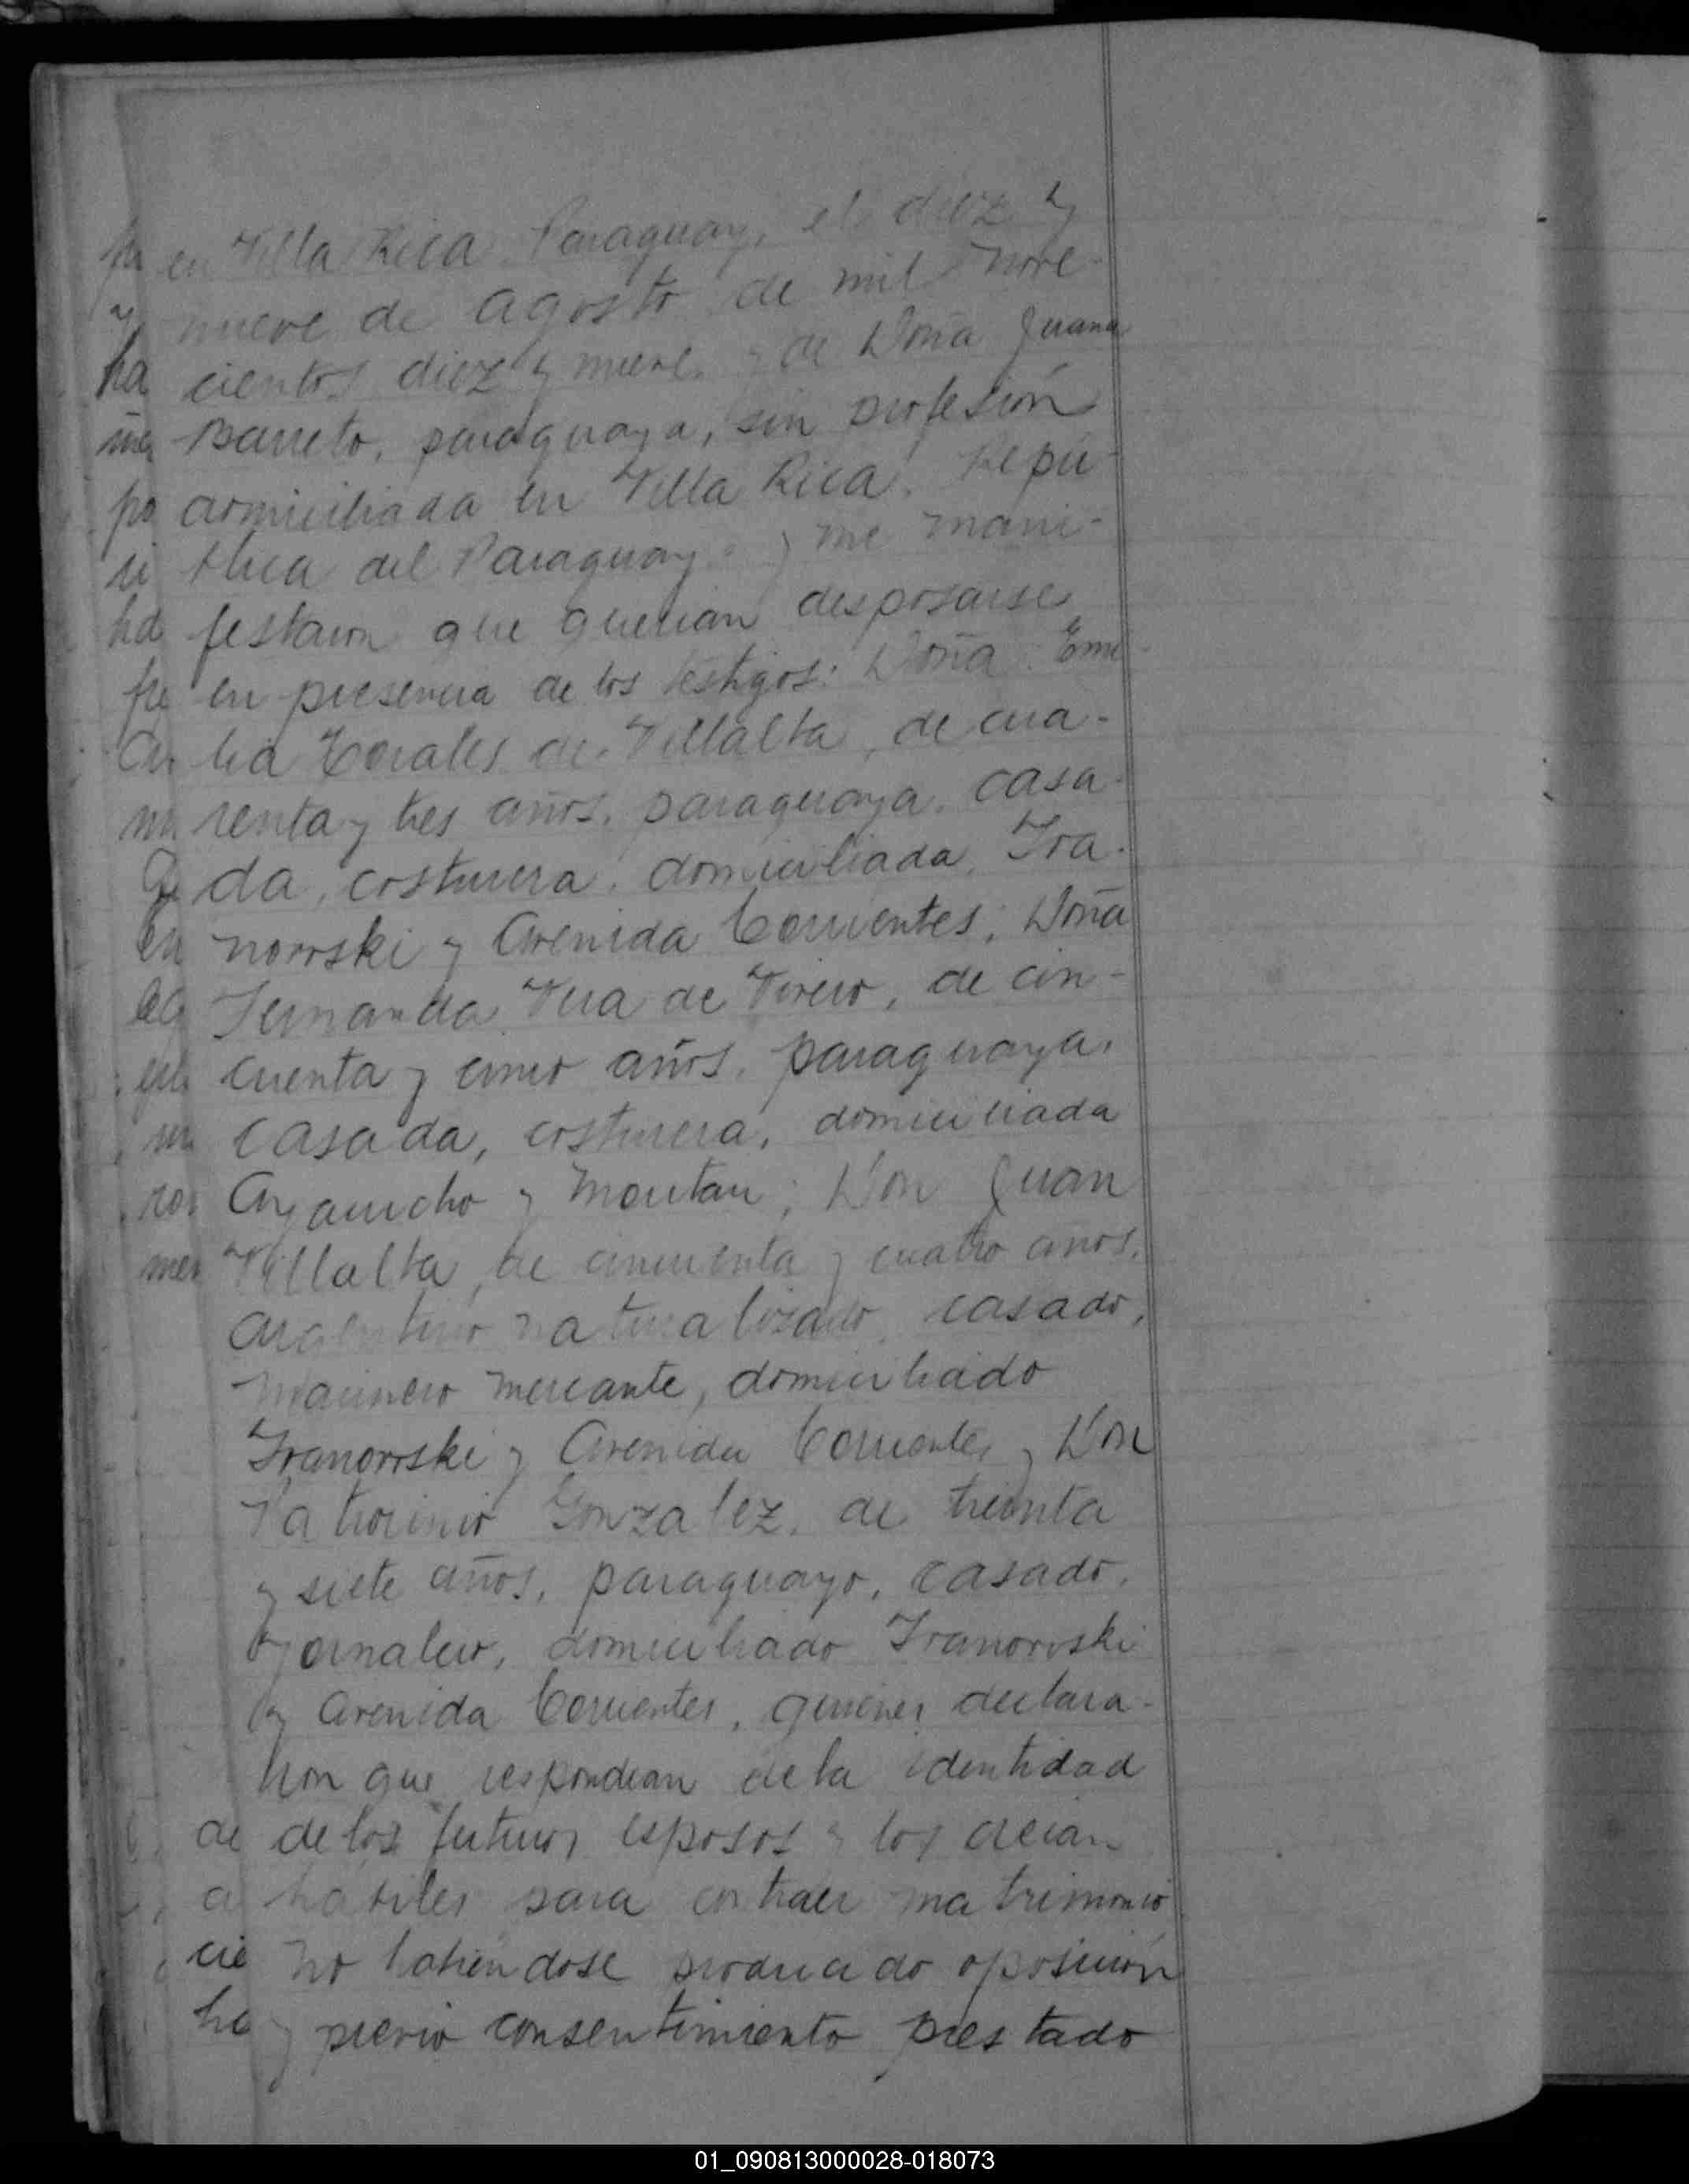 en Villa Rica Paraguay, el diez y
nueve de agosto de mil nove-
cientos diez y nueve, y de Doña Juana
Barreto, paraguaya, sin profesión
domiciliada en Villa Rica, Repú-
blica del Paraguay. y me mani-
festaron que querian desposarse
en presencia de los testigos: Doña Emi-
lia Corales de Villalta, de cua-
renta y tres años, paraguaya, casa-
da, costurera, domiciliada, Iva-
novski y Avenida Corrientes; Doña
Fernanda Vera de Vivero, de cin-
cuenta y cinco años, paraguaya,
casada, costurera, domiciliada
Ayaucho y Moritan; Don Juan
Villalta, de cincuenta y cuatro años,
argentino naturalizado, casado,
Marinero mercante, domiciliado
Ivanovski y Avenida Corrientes y Don
Patrocinio Gonzalez, de treinta
y siete años, paraguayo, casado,
jornalero, domiciliado Ivanovski
y Avenida Corrientes, quienes declara-
ron que respondian de la identidad
de los futuros esposos y los creian
habiles para contraer matrimonio
no habiendose producido oposición
y previo consentimiento prestado
01_090813000028-018073